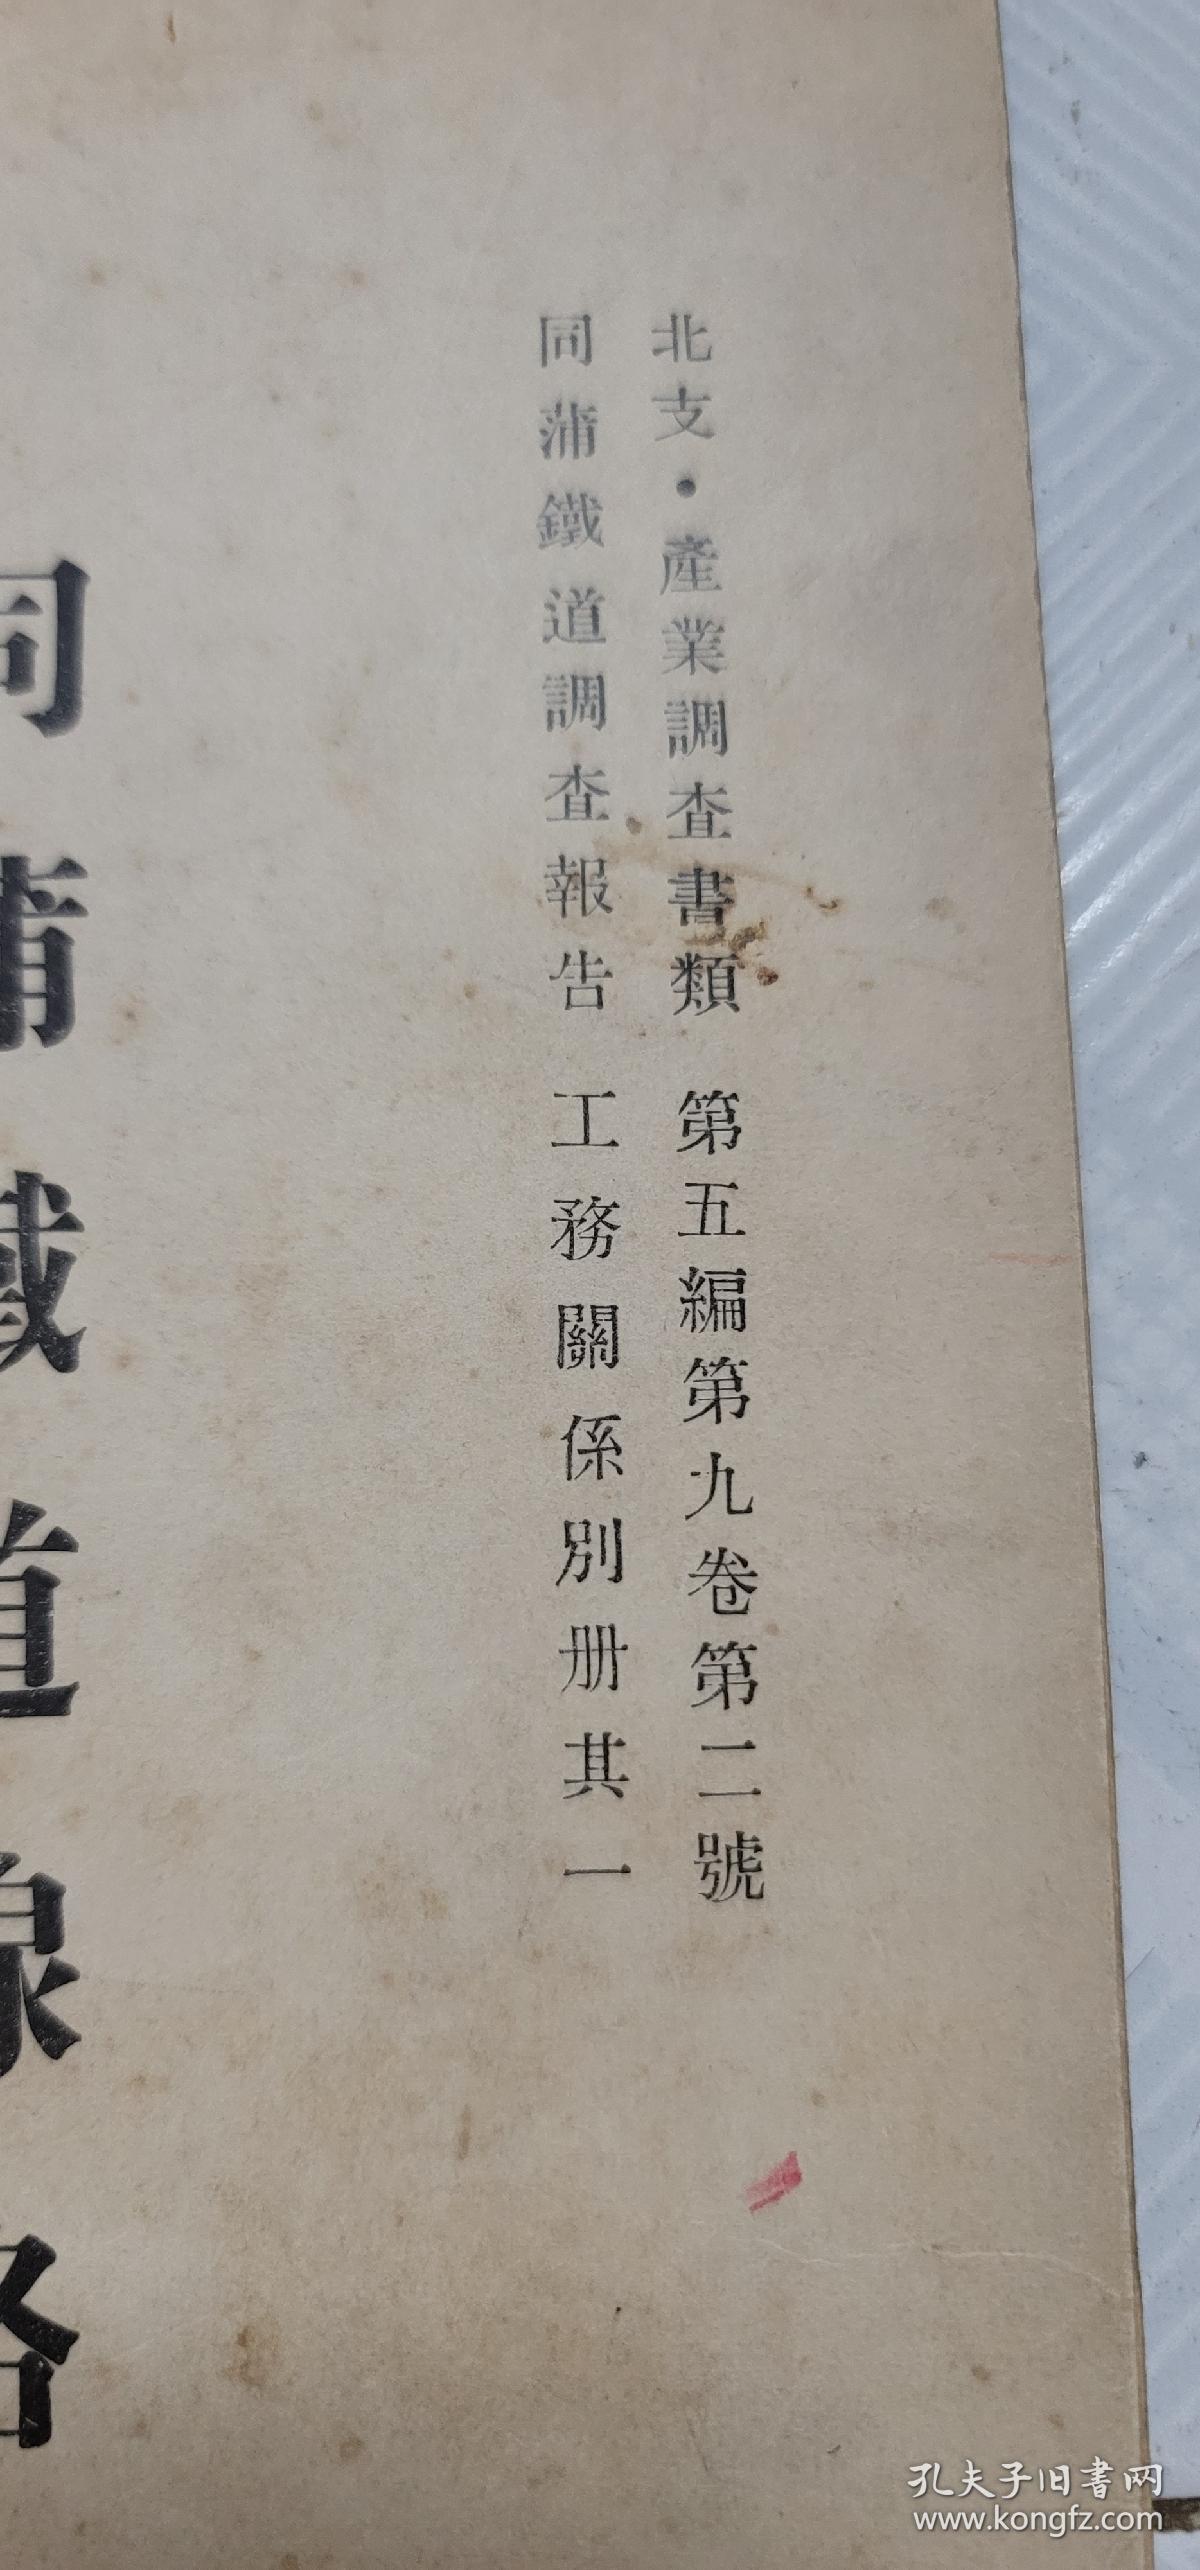 北支・產業調査書類 第五編第九卷第二號
同蒲鐵道調査報告 工務關係別册其一
同蒲鐵道線路
孔夫子旧书网
www.kongfz.com